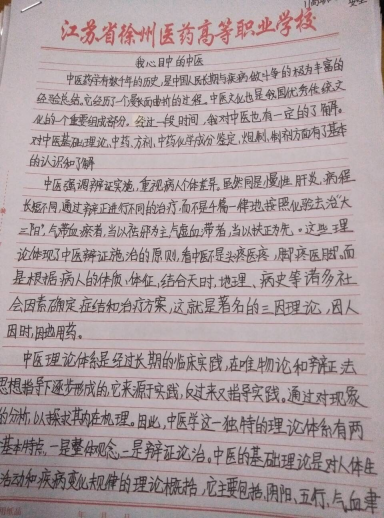 江苏省徐州医药高等职业学校
我心目中的中医
中医药学有数千年的历史,是中国人民长期与疾病做斗争的极为丰富的
经验总结,它经历了一个漫长而曲折的过程。中医文化也是我国优秀传统文
化的一个重要组成部分。经过一段时间,我对中医也有一定的了解。
对中医基础理论,中药,方剂,中药化学成分鉴定,炮制,制剂方面有了基本
的认识和了解
中医强调辨证实施,重视病人个体差异。虽然同是慢性肝炎,病程
长短不同,通过辨证进行不同的治疗,而不是千篇一律地按照化验去治"大
三阳",气滞血瘀者,当以祛邪为主气虚血滞者,当以扶正为先。这些理
论体现了中医辨证施治的原则,看中医不是头疼医疼,脚疼医脚,而
是根据病人的体质、体征,结合天时、地理、病史等诸多社
会因素确定症结和治疗方案,这就是著名的三因理论,因人
因时,因地用药。
中医理论体系是经过长期的临床实践,在唯物论和辨证法
思想指导下逐步形成的,它来源于实践,反过来又指导实践。通过对现象
的分析,以探求其内在机理。因此,中医学这一独特的理论体系有两
基本特点,一是整体观念,二是辨证论治。中医的基础理论是对人体生
活动和疾病变化规律的理论概括,它主要包括,阴阳、五行、气血津